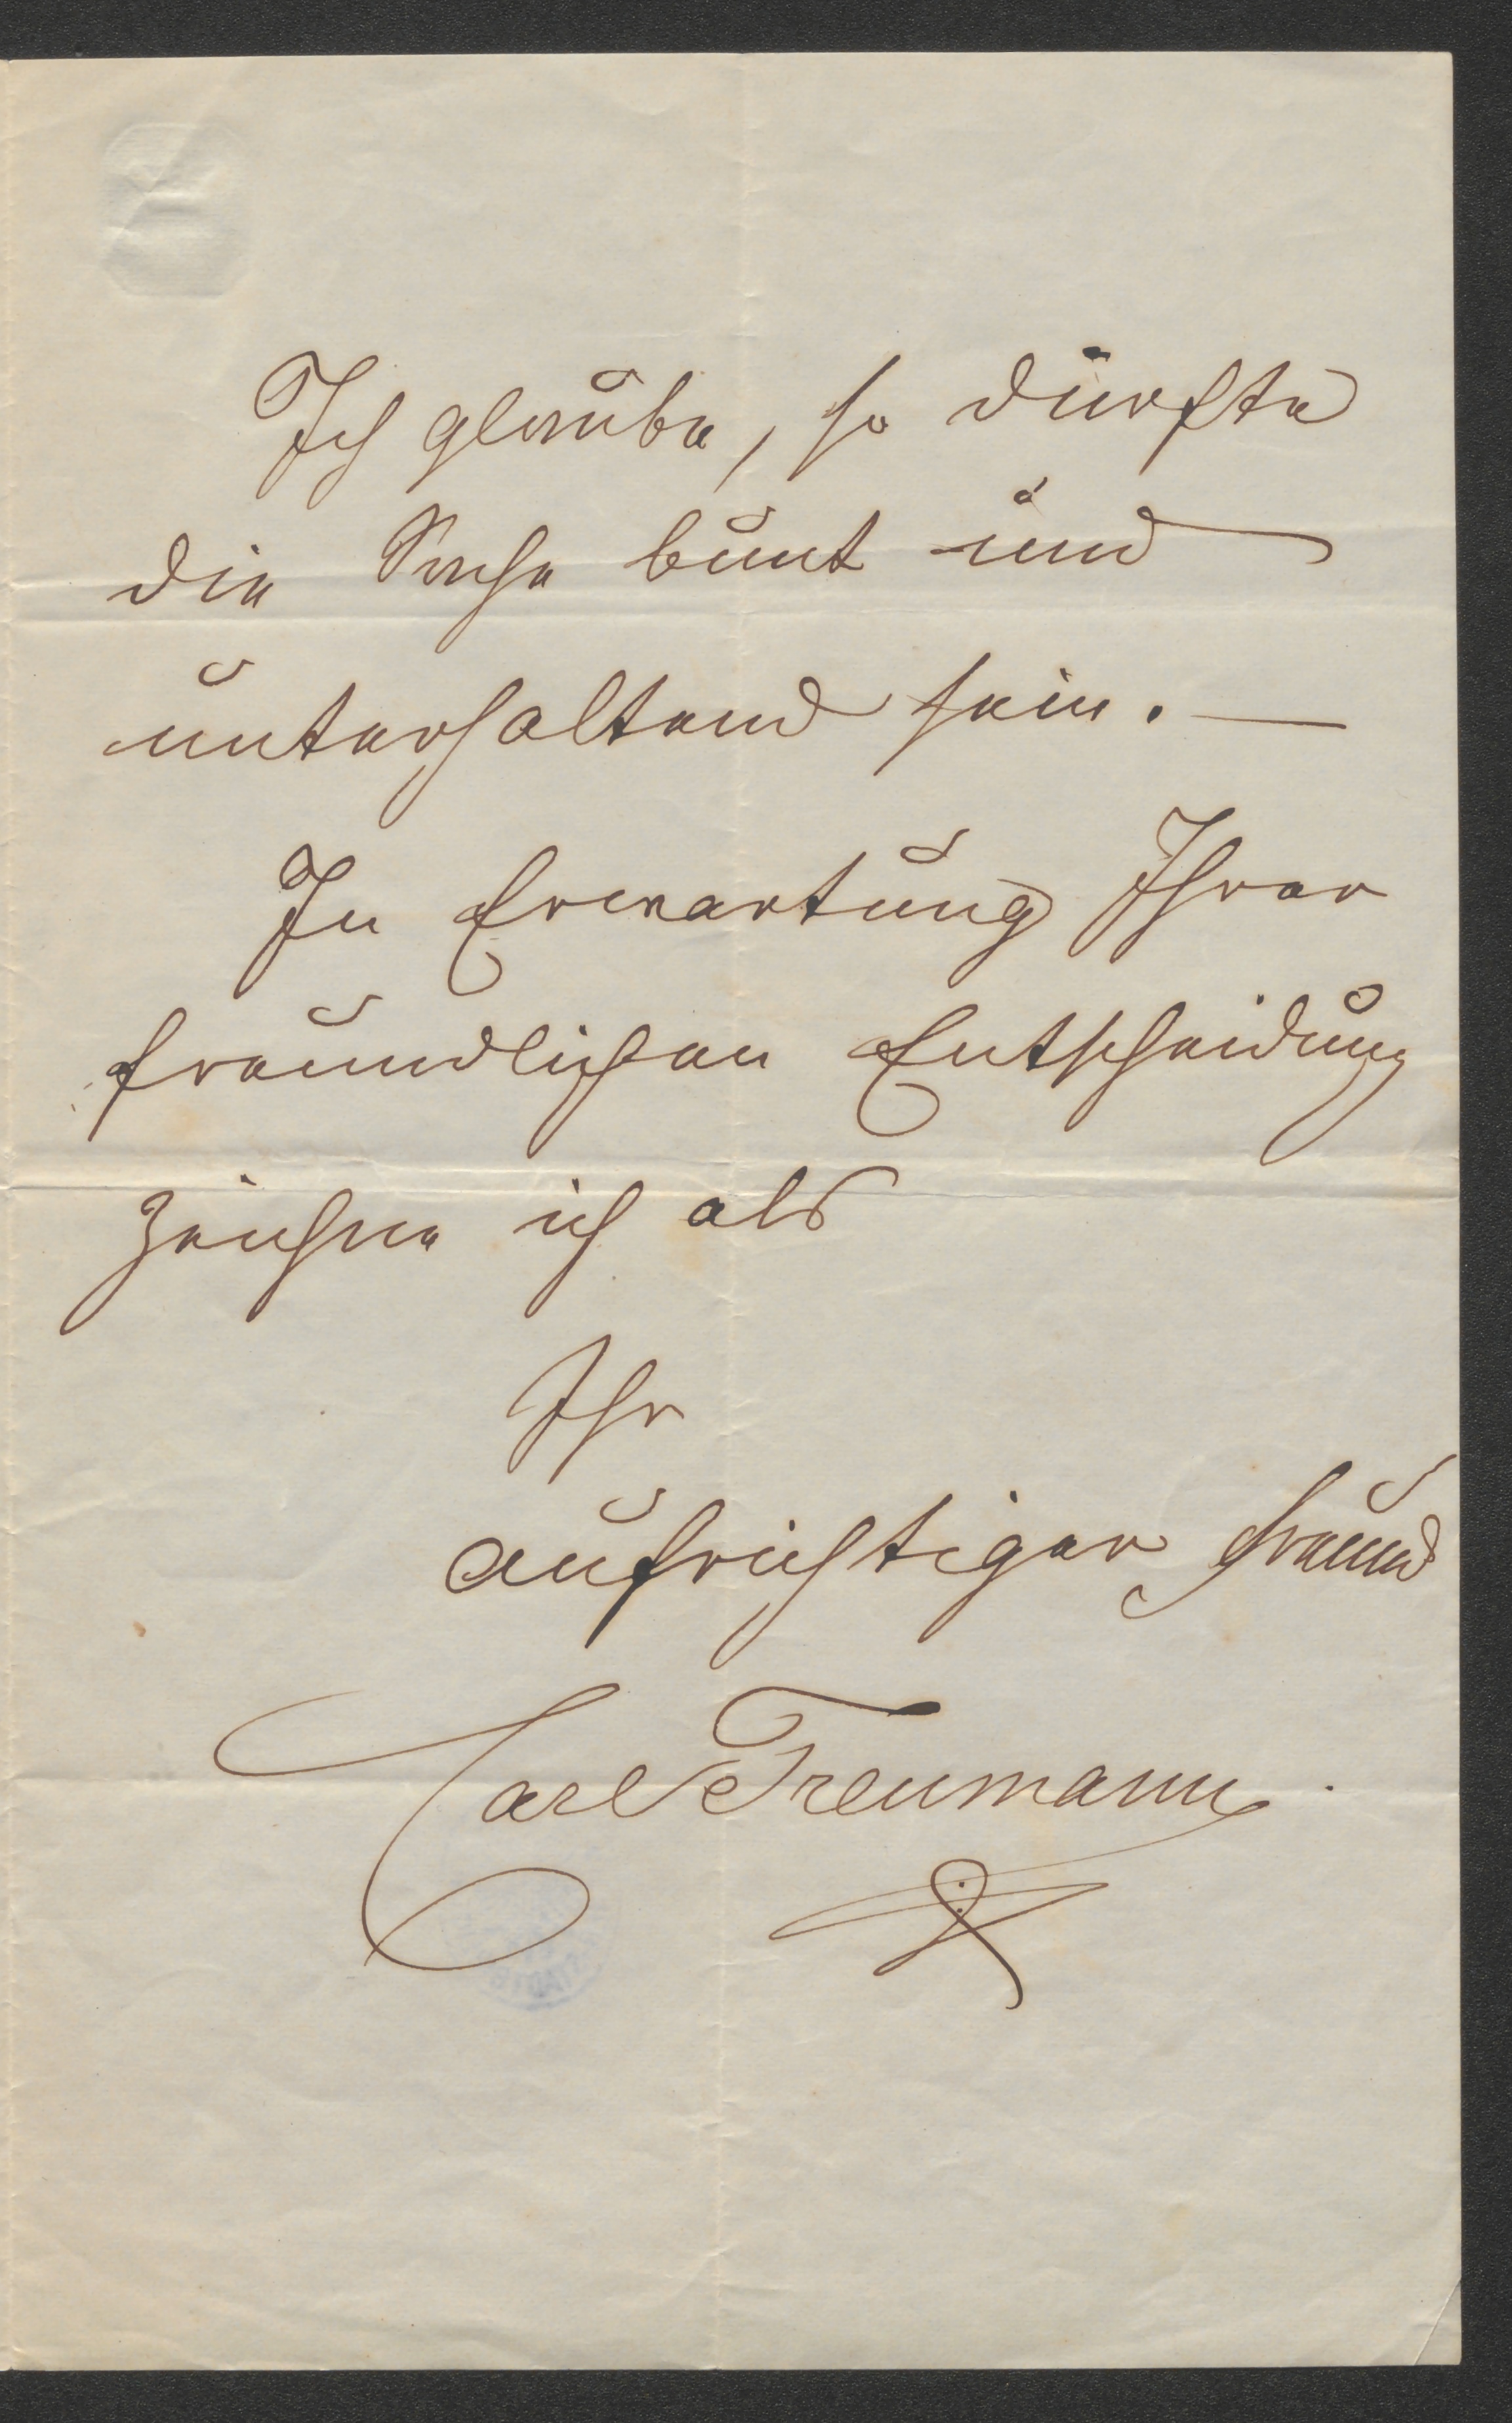 Ich glaube, so dürfte
die Sache bunt und
unterhaltend sein. —
In Erwartung Ihrer
freundlichen Entscheidung
zeichne ich als
Ihr
aufrichtiger Freund
Carl Treumann.